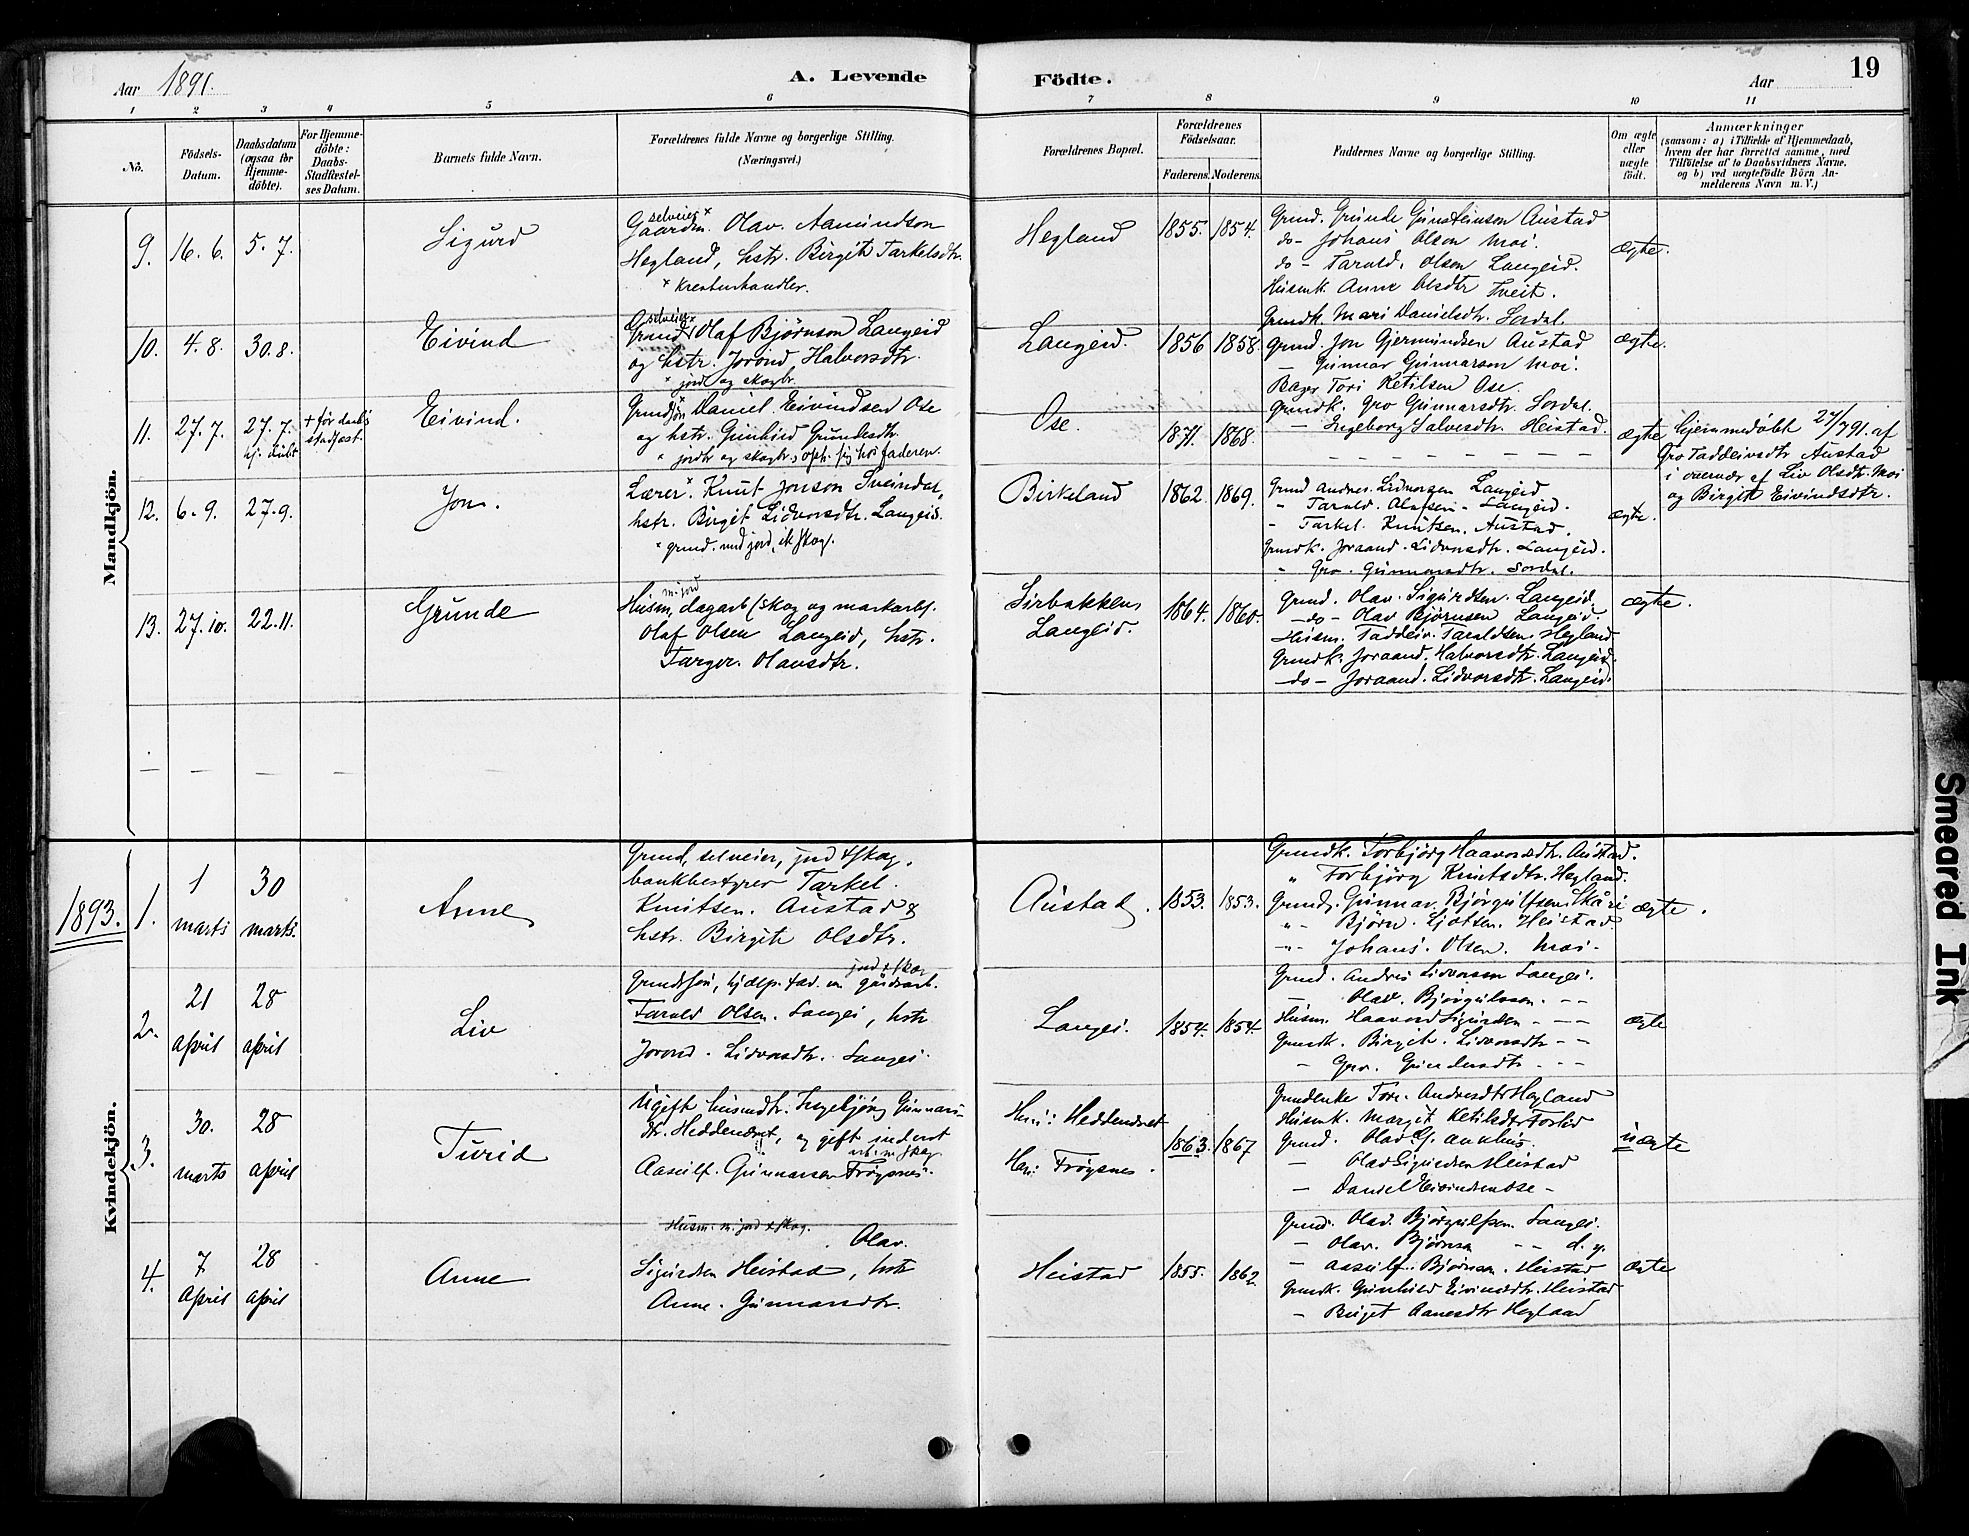 Aar 1891.
A. Levende
Födte.
Aar
19
1 2 3 4 5 6 7 8 9 10 11
No.
Födsels-Datum.
Daabsdatum (ogsaa för Hjemmedöbte).
For Hjemmedöbte: Daabs-Stadfæstelses Datum.
Barnets fulde Navn.
Forældrenes fulde Navne og borgerlige Stilling.
(Næringsvei.)
Forældrenes Bopæl.
Forældrenes Födselsaar.
Faderens. Moderens.
Faddernes Navne og borgerlige Stilling.
Om ægte eller uægte födt.
Anmærkninger
(saasom: a) i Tilfælde af Hjemmedaab,
hvem der har forrettet samme, med
Tilföielse af to Daabsvidners Navne,
og b) ved uægtefödte Börn An-
melderens Navn m. V.)
Mandkjön.
9. 16. 6. 5. 7.
Sigurd
selveier x
Gaardm. Olav. Aamundson
Hegland, hstr. Birgit Tarkelsdtr.
x kreaturhandler.
Hegland
1855. 1854.
Grund. Grunde Gunsteinson Austad
do- Johans Olson Moi.
do - Tarald. Olson Langeid.
Husmk. Anne Olsdtr Tveit.
Grundk. Mari Danielsdtr. Sordal.
ægte.
10. 4. 8. 30. 8.
Eivind
selveier x
Grund Olaf Bjørnson Langeid
og hstr. Jorond Halvorsdtr.
x jord og skogbr.
Langeid.
1856 1858.
Grund. Jon Gjermundsen Austad
- Gunnar Gunnarson Moi.
Bager Tori Ketilsen Ose.
Grundk. Gro Gunnarsdtr. Sordal.
- Ingeborg Salvesdtr. Heistad.
ægte.
11. 27. 7. 27. 7. hj. døbt
+ før daabs stadfæst.
Eivind.
Grundsøn Daniel Eivindsen Ose
og hstr. Gunhild Grundesdtr.
x jordbr og skogbr., oph. sig hos faderen.
Ose.
1871. 1868.
ægte
hjemmedøbt 27/7 91. af
Gro Taddeivsdtr Austad
i overvær af Liv Olsdtr. Moi
og Birgit Eivindsdtr.
12. 6. 9. 27. 9.
Jon.
Lærer x. Knut Jonson Sveindal,
hstr. Birgit Lidvorsdtr. Langeid.
x grund. med jord, ik skog.
Birkeland
1862. 1869.
Grund Andres. Lidvorsen Langeid
" Tarald. Olafsen - Langeid.
- Tarkel. Knutsen. Austad.
Grundk. Joraand. Lidvorsdtr. Langeid.
" Gro. Gunnarsdtr. Sordal.
ægte.
13. 27. 10. 22. 11.
Grunde
m. jord
Husm, dagarb (skog og markarb).
Olaf Olsen Langeid, hstr.
Targer. Olavsdtr.
Sirbakken
Langeid.
1864. 1860.
Grund. Olav. Sigurdsen. Langeid.
-do- Olav Bjørnsen Langeid.
Husm. Taddeiv. Taraldsen. Hegland
Grundk. Joraand. Halvorsdtr. Langeid.
-do- Joraand. Lidvorsdtr. Langeid.
ægte.
1893.
Kvindekjön.
1. 1 marts 30 marts.
Anne
Grund, selveier, jord + skog,
bankbestyrer Tarkel.
Knutsen. Austad &
hstr. Birgit Olsdtr.
Austad.
1853. 1853.
Grundk. Torbjørg Haavorsdtr. Austad.
" Torbjørg Knutsdtr. Hegland.
Grundg. Gunnar. Bjørgulfsen Skåri
"- Bjørn. Ljotsen. Heistad
"- Johans. Olsen. Moi-
ægte.
2. 21 april 28 april
Liv
jord + skog
Grundsøn, hjælp. fad. m gaardsarb.
Tarald Olsen. Langei, hstr
Jorond. Lidvorsdtr. Langei.
Langei.
1854. 1854.
Grund. Andres Lidvorsen Langei.
- Olav. Bjørgulvson. - -
Husm. Haavord Sigurdsen - - -
Grundk. Birgit. Lidvorsdtr - -
- Gro. Gundersdtr - - -
ægte
3. 30. marts 28 april
Turid
Ugift husmdtr. Ingebjørg Gunnars-
dtr. Heddenæset, og gift inderst
Aasulf. Gunnarsen Frøysnes.
Hen: Heddenæset
Han: Frøysnes.
1863. 1867
Grundenke Tore. Andresdtr Hegland
Husmk. Margit Ketilsdtr
Grund. Olav
- Olav Sigurdsen Heistad
- Daniel Eivindsen Ose -
uægte
4. 7 april 28 april
Anne
Husm. m. jord + skog.
Olav.
Sigurdsen Heistad, hstr
Anne. Gunnarsdtr.
Heistad
1855. 1862.
Grund. Olav. Bjørgulfsen. Langei.
- Olav. Bjørnsen - - d. y.
- Aasulf. Bjørnsen. Heistad
Grundk. Gunhild Eivindsdtr. Heistad
- Birget Aanesdtr Hegland
ægte
Smeared Ink